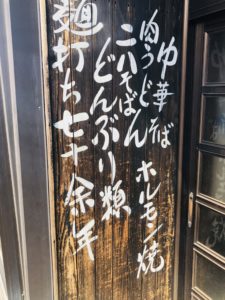 ゆ華そば ホルモン焼
肉うどん
二八そば
どんぶり類
麺打ち七十余年